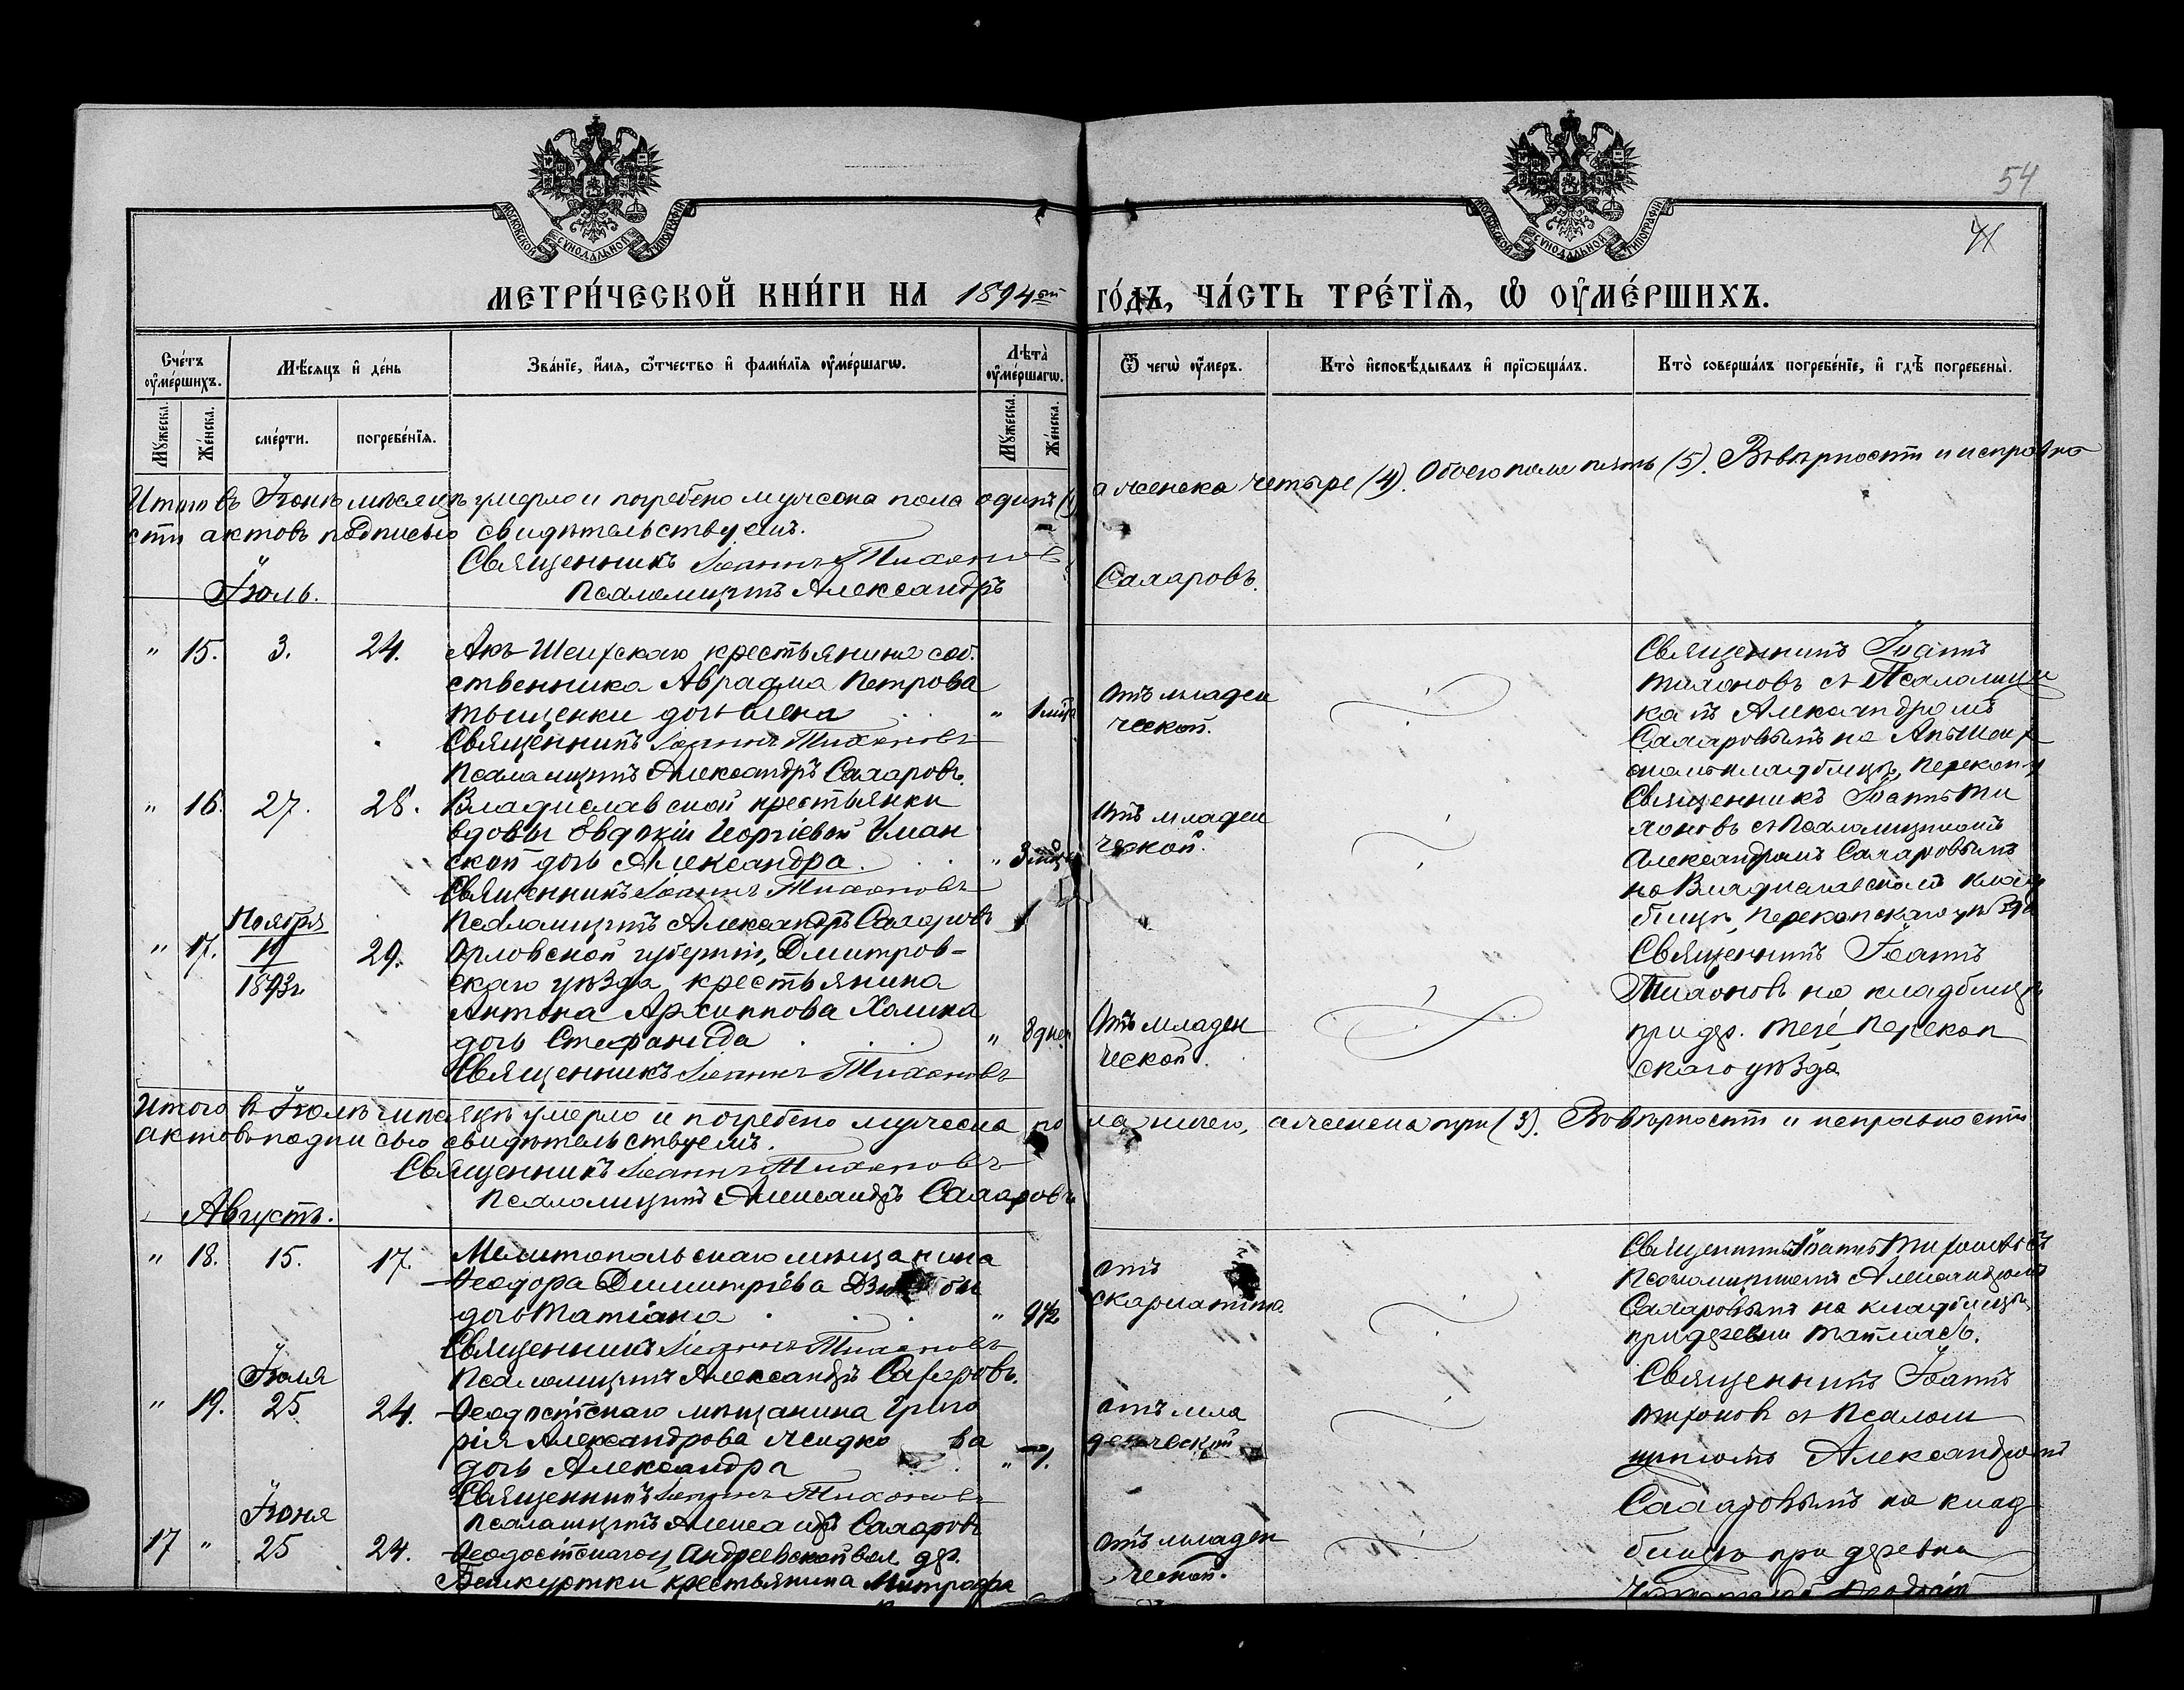 54
41
МОСКОВСКОЙ СѴНОДАЛЬНОЙ ТИПОГРАФІИ
МОСКОВСКОЙ СѴНОДАЛЬНОЙ ТИПОГРАФІИ
МЕТРИ́ЧЕСКОЙ КНИ́ГИ НА 1894ый ГО́ДЪ, ЧА́СТЬ ТРЕ́ТІѦ, Ѡ҆ ОУ҆МЕ́РШИХЪ.
Сче́тъ оу҆ме́ршихъ.
Мѣ́сяцъ и҆ де́нь
Зва́нїе, и҆́мѧ, ѻ҆́тчество и҆ фамилїѧ оу҆ме́ршагѡ.
Лѣ́та оу҆ме́ршагѡ.
Ѿ чегѡ̀ оу҆́меръ.
Кто̀ и҆сповѣ́дывалъ и҆ прїѡбща́лъ.
Кто̀ соверша́лъ погребе́нїе, и҆ гдѣ̀ погребены̀.
Мꙋ́жеска.
Же́нска.
сме́рти.
погребе́нїѧ.
Мꙋ́жеска.
Же́нска.
Итого въ Іюнѣ мѣсяцѣ умерло и погребено мужеска пола одинъ (1) а женска четыре (4). Обоего пола пять (5). Въ вѣрности и исправно
сти актовъ подписью свидѣтельствуемъ.
Священникъ Іоаннъ Тихоновъ
Псаломщикъ Александръ Сахаровъ.
Іюль.
" 15. 3. 24. Акъ Шеихскаго крестьянина соб
ственника Авраама Петрова
Тыщенки дочь Елена " 1 мѣс
Священникъ Іоаннъ Тихоновъ
Псаломщикъ Александръ Сахаровъ.
Отъ младен
ческой.
Священникъ Іоаннъ
Тихоновъ съ Псаломщи
комъ Александромъ
Сахаровымъ на Акъ Шеих
скомъ кладбищѣ, Перекоп. у
" 16. 27. 28. Владиславской крестьянки
вдовы Евдокіи Георгіевой Уман
ской дочь Александра. " 3 мѣсц
Священникъ Іоаннъ Тихоновъ
Псаломщикъ Александръ Сахаровъ
Отъ младен
ческой.
Священникъ Іоаннъ Ти
хоновъ съ Псаломщикомъ
Александромъ Сахаровымъ
на Владиславскомъ клад
бищѣ, Перекопскаго уѣзда
" 17. Ноября 19 1893г. 29. Орловской губерніи, Дмитров-
скаго уѣзда крестьянина
Антона Архиппова Холина
дочь Стефанида " 8 дней
Священникъ Іоаннъ Тихоновъ
Отъ младен
ческой.
Священникъ Іоаннъ
Тихоновъ на кладбищѣ
при дер. Теге Перекоп
скаго уѣзда
Итого въ Іюлѣ мѣсяцѣ умерло и погребено мужеска пола ничего, а женска три (3). Въ вѣрности и исправности
актовъ подписью свидѣтельствуемъ.
Священникъ Іоаннъ Тихоновъ
Псаломщикъ Александръ Сахаровъ
Августъ.
" 18. 15. 17. Мелитопольскаго мѣщанина
Ѳеодора Димитріева
дочь Татіана " 9½
Священникъ Іоаннъ Тихоновъ
Псаломщикъ Александръ Сахаровъ.
Отъ
скарлатины.
Священникъ Іоаннъ Тихоновъ съ
Псаломщикомъ Александромъ
Сахаровымъ на кладбищѣ
при деревни
" 19. Іюля 25 24. Ѳеодосійскаго мѣщанина Григо
рія Александрова
дочь Александра " 1.
Священникъ Іоаннъ Тихоновъ
Псаломщикъ Александръ Сахаровъ
Отъ мла
денческой
Священникъ Іоаннъ
Тихоновъ съ Псалом
щикомъ Александромъ
Сахаровымъ на клад
бищѣ при деревни
17 " Іюня 25 24. Ѳеодосійскаго у Андреевской вол. дер.
крестьянина Митрофа
Отъ младен
ческой.